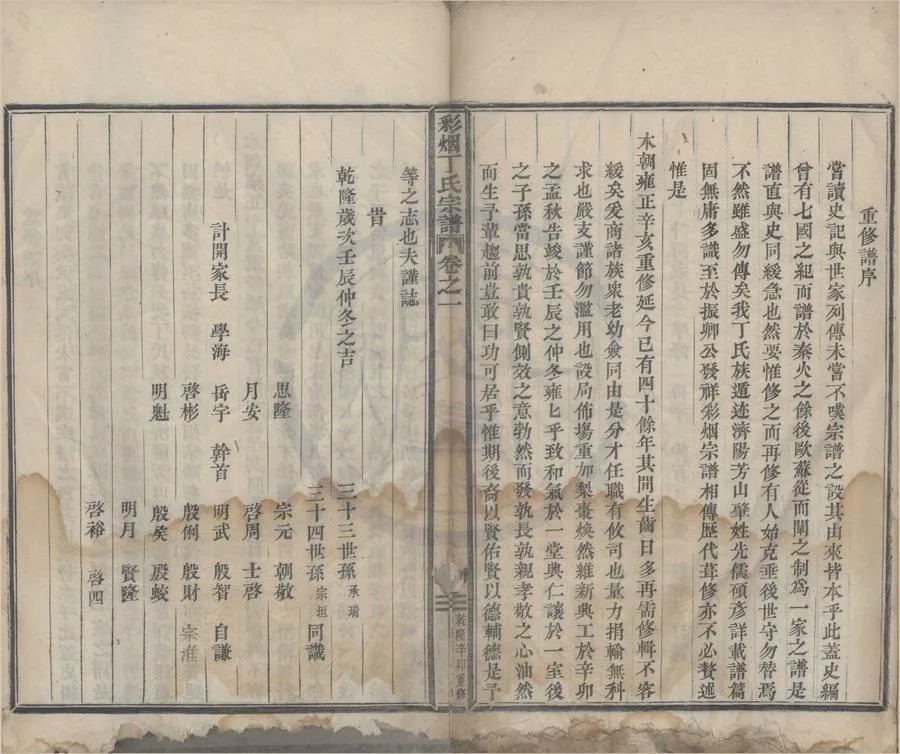 重修譜序
嘗讀史記與世家列傳未嘗不嘆宗譜之設其由來皆本乎此蓋史編
曾有七國之紀而譜於秦火之餘後歐蘇從而闡之制為一家之譜是
譜直與史同緩急也然要惟修之而再修有人始克垂後世守勿替焉
不然雖盛勿傳矣我丁氏族遁迹濟陽芳山肇姓先儒碩彥詳載譜篇
固無庸多識至於振卿公發祥彩烟宗譜相傳歷代葺修亦不必贅述
惟是
本朝雍正辛亥重修延今已有四十餘年其間生齒日多再需修輯不容
緩矣爰商諸族衆老幼僉同由是分才任職有攸司也量力捐輸無科
求也嚴支謹節勿濫用也設局佈塲重加梨棗煥然維新興工於辛卯
之孟秋告竣於壬辰之仲冬雍匕乎致和氣於一堂興仁讓於一室後
之子孫當思孰貴孰賢側效之意勃然而發孰長孰親孝敬之心油然
而生予輩趨前豈敢曰功可居乎惟期後裔以賢佑賢以德輔德是予
彩烟丁氏宗譜 卷之一 乾隆辛卯重修
等之志也夫謹誌
昔
乾隆歲次壬辰仲冬之吉
三十三世孫 承瑞
三十四世孫 宗垣 同識
思隆 宗元 朝敬
月安 啓周 士啓
計開家長 學海 岳宇 幹首 明武 殷智 自謙
啓彬 殷俐 殷財 宗淮
明魁 殷侯 殷蛟
明月 賢隆
啓裕 啓四